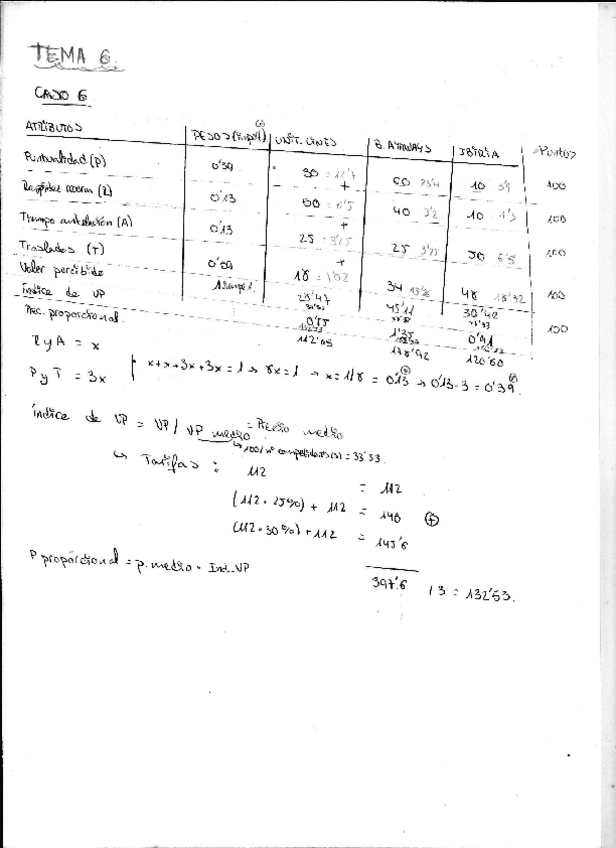 TEMA 6.
CASO 6
ATRIBUTOS PESOS (import) UNIT. LINES B. AIRWAYS IBIRIA Puntos
Puntualidad (P) 0'39 30 = 11'7 60 23'4 10 3'9 100
0'13 50 = 6'5 40 5'2 10 1'3 100
Tiempo antelación (A) 0'13 25 = 3'25 25 3'25 50 6'5 100
Traslados (T) 0'39 18 = 7'02 34 13'26 48 18'72 100
Valor percibido 28'47 45'11 30'42 100
Índice de VP 0'85 1'35 0'91
Prec. proporcional 112'65 178'92 120'60
R y A = x
P y T = 3x
x+x+3x+3x=1 → 8x=1 → x=1/8 = 0'13 → 0'13·3 = 0'39
Índice de VP = VP / VP medio = Precio medio
↳ 100/nº competidores(3) = 33'33.
↳ Tarifas : 112 = 112
(112 · 25%) + 112 = 140
(112 · 30%) + 112 = 145'6
P proporcional = p. medio · Ind. VP
397'6 / 3 = 132'53.